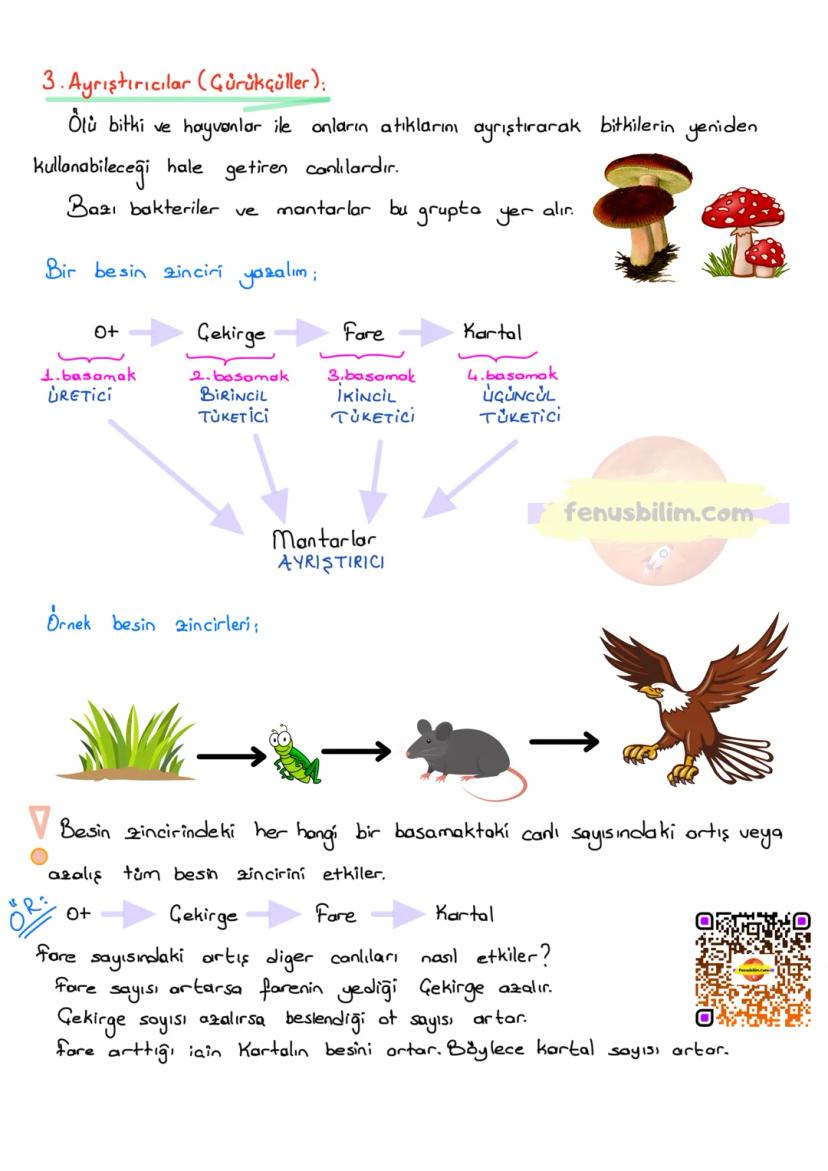 3. Ayrıştırıcılar (Çürükçüller):
Ölü bitki ve hayvanlar ile onların atıklarını ayrıştırarak bitkilerin yeniden
kullanabileceği hale getiren canlılardır.
Bazı bakteriler ve mantarlar bu grupta yer alır.
Bir besin zinciri yazalım;
Ot Çekirge Fare Kartal
1. basamak 2. basamak 3. basamak 4. basamak
ÜRETİCİ BİRİNCİL İKİNCİL ÜÇÜNCÜL
TÜKETİCİ TÜKETİCİ TÜKETİCİ
fenusbilim.com
Mantarlar
AYRIŞTIRICI
Örnek besin zincirleri;
Besin zincirindeki her hangi bir basamaktaki canlı sayısındaki artış veya
azalış tüm besin zincirini etkiler.
ÖR: Ot Çekirge Fare Kartal
Fare sayısındaki artış diger canlıları nasıl etkiler?
Fare sayısı artarsa farenin yediği Çekirge azalır.
Çekirge sayısı azalırsa beslendiği ot sayısı artar.
Fare arttığı için Kartalın besini artar. Böylece kartal sayısı artar.
fenusbilim.com